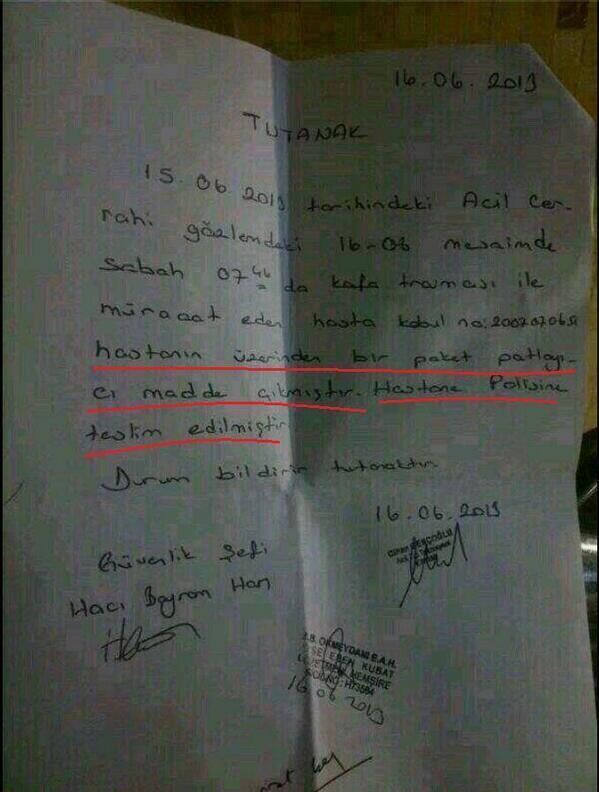 16.06.2013
TUTANAK
15.06.2013 tarihindeki Acil Cer-
rahi gözlemdeki 16-08 mesaimde
Sabah 07 da kafa travması ile
müracaat eden hasta kabul no:
hastanın üzerinden bir paket patlayı-
cı madde çıkmıştır. Hastane Polisine
teslim edilmiştir.
Durum bildirir tutanaktır.
16.06.2013
Güvenlik Şefi
Hacı Bayram Han
S.B. OKMEYDANI E.A.H.
KUBAT
HEMŞİRE
16 06 2013